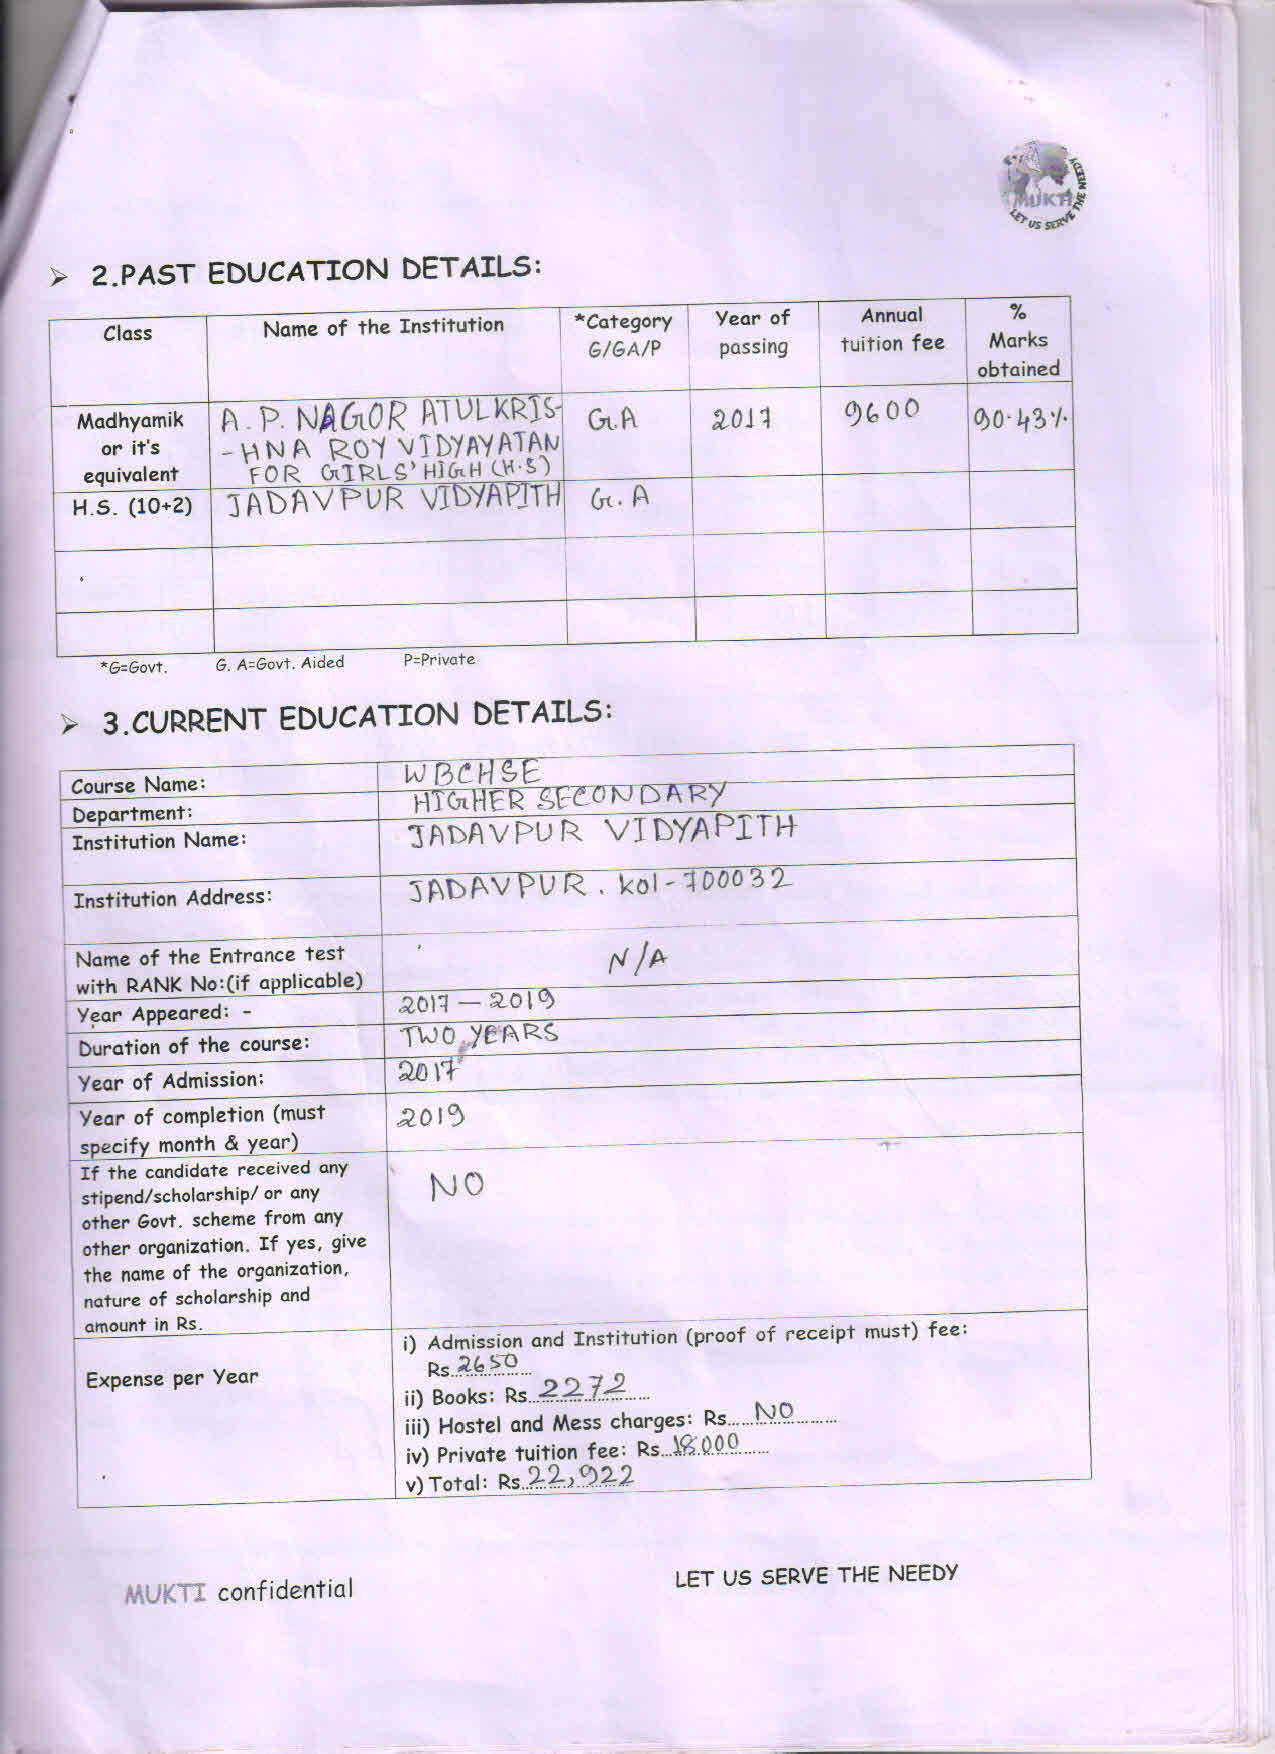 MUKTI
LET US SERVE THE NEEDY
➢ 2.PAST EDUCATION DETAILS:
Class
Name of the Institution
*Category
G/GA/P
Year of
passing
Annual
tuition fee
%
Marks
obtained
Madhyamik
or it's
equivalent
A.P. NAGOR ATULKRIS-
-HNA ROY VIDYAYATAN
FOR GIRLS' HIGH (H.S)
G.A
2017
9600
90.43%
H.S. (10+2)
JADAVPUR VIDYAPITH
G.A
*G=Govt. G. A=Govt. Aided P=Private
➢ 3.CURRENT EDUCATION DETAILS:
Course Name: WBCHSE
Department: HIGHER SECONDARY
Institution Name: JADAVPUR VIDYAPITH
Institution Address: JADAVPUR. kol-700032
Name of the Entrance test
with RANK No:(if applicable)
N/A
Year Appeared: - 2017 - 2019
Duration of the course: TWO YEARS
Year of Admission: 2017
Year of completion (must
specify month & year)
2019
If the candidate received any
stipend/scholarship/ or any
other Govt. scheme from any
other organization. If yes, give
the name of the organization,
nature of scholarship and
amount in Rs.
NO
Expense per Year
i) Admission and Institution (proof of receipt must) fee:
Rs.2650
ii) Books: Rs...2272
iii) Hostel and Mess charges: Rs......NO
iv) Private tuition fee: Rs...18000
v) Total: Rs..22,922
MUKTI confidential
LET US SERVE THE NEEDY